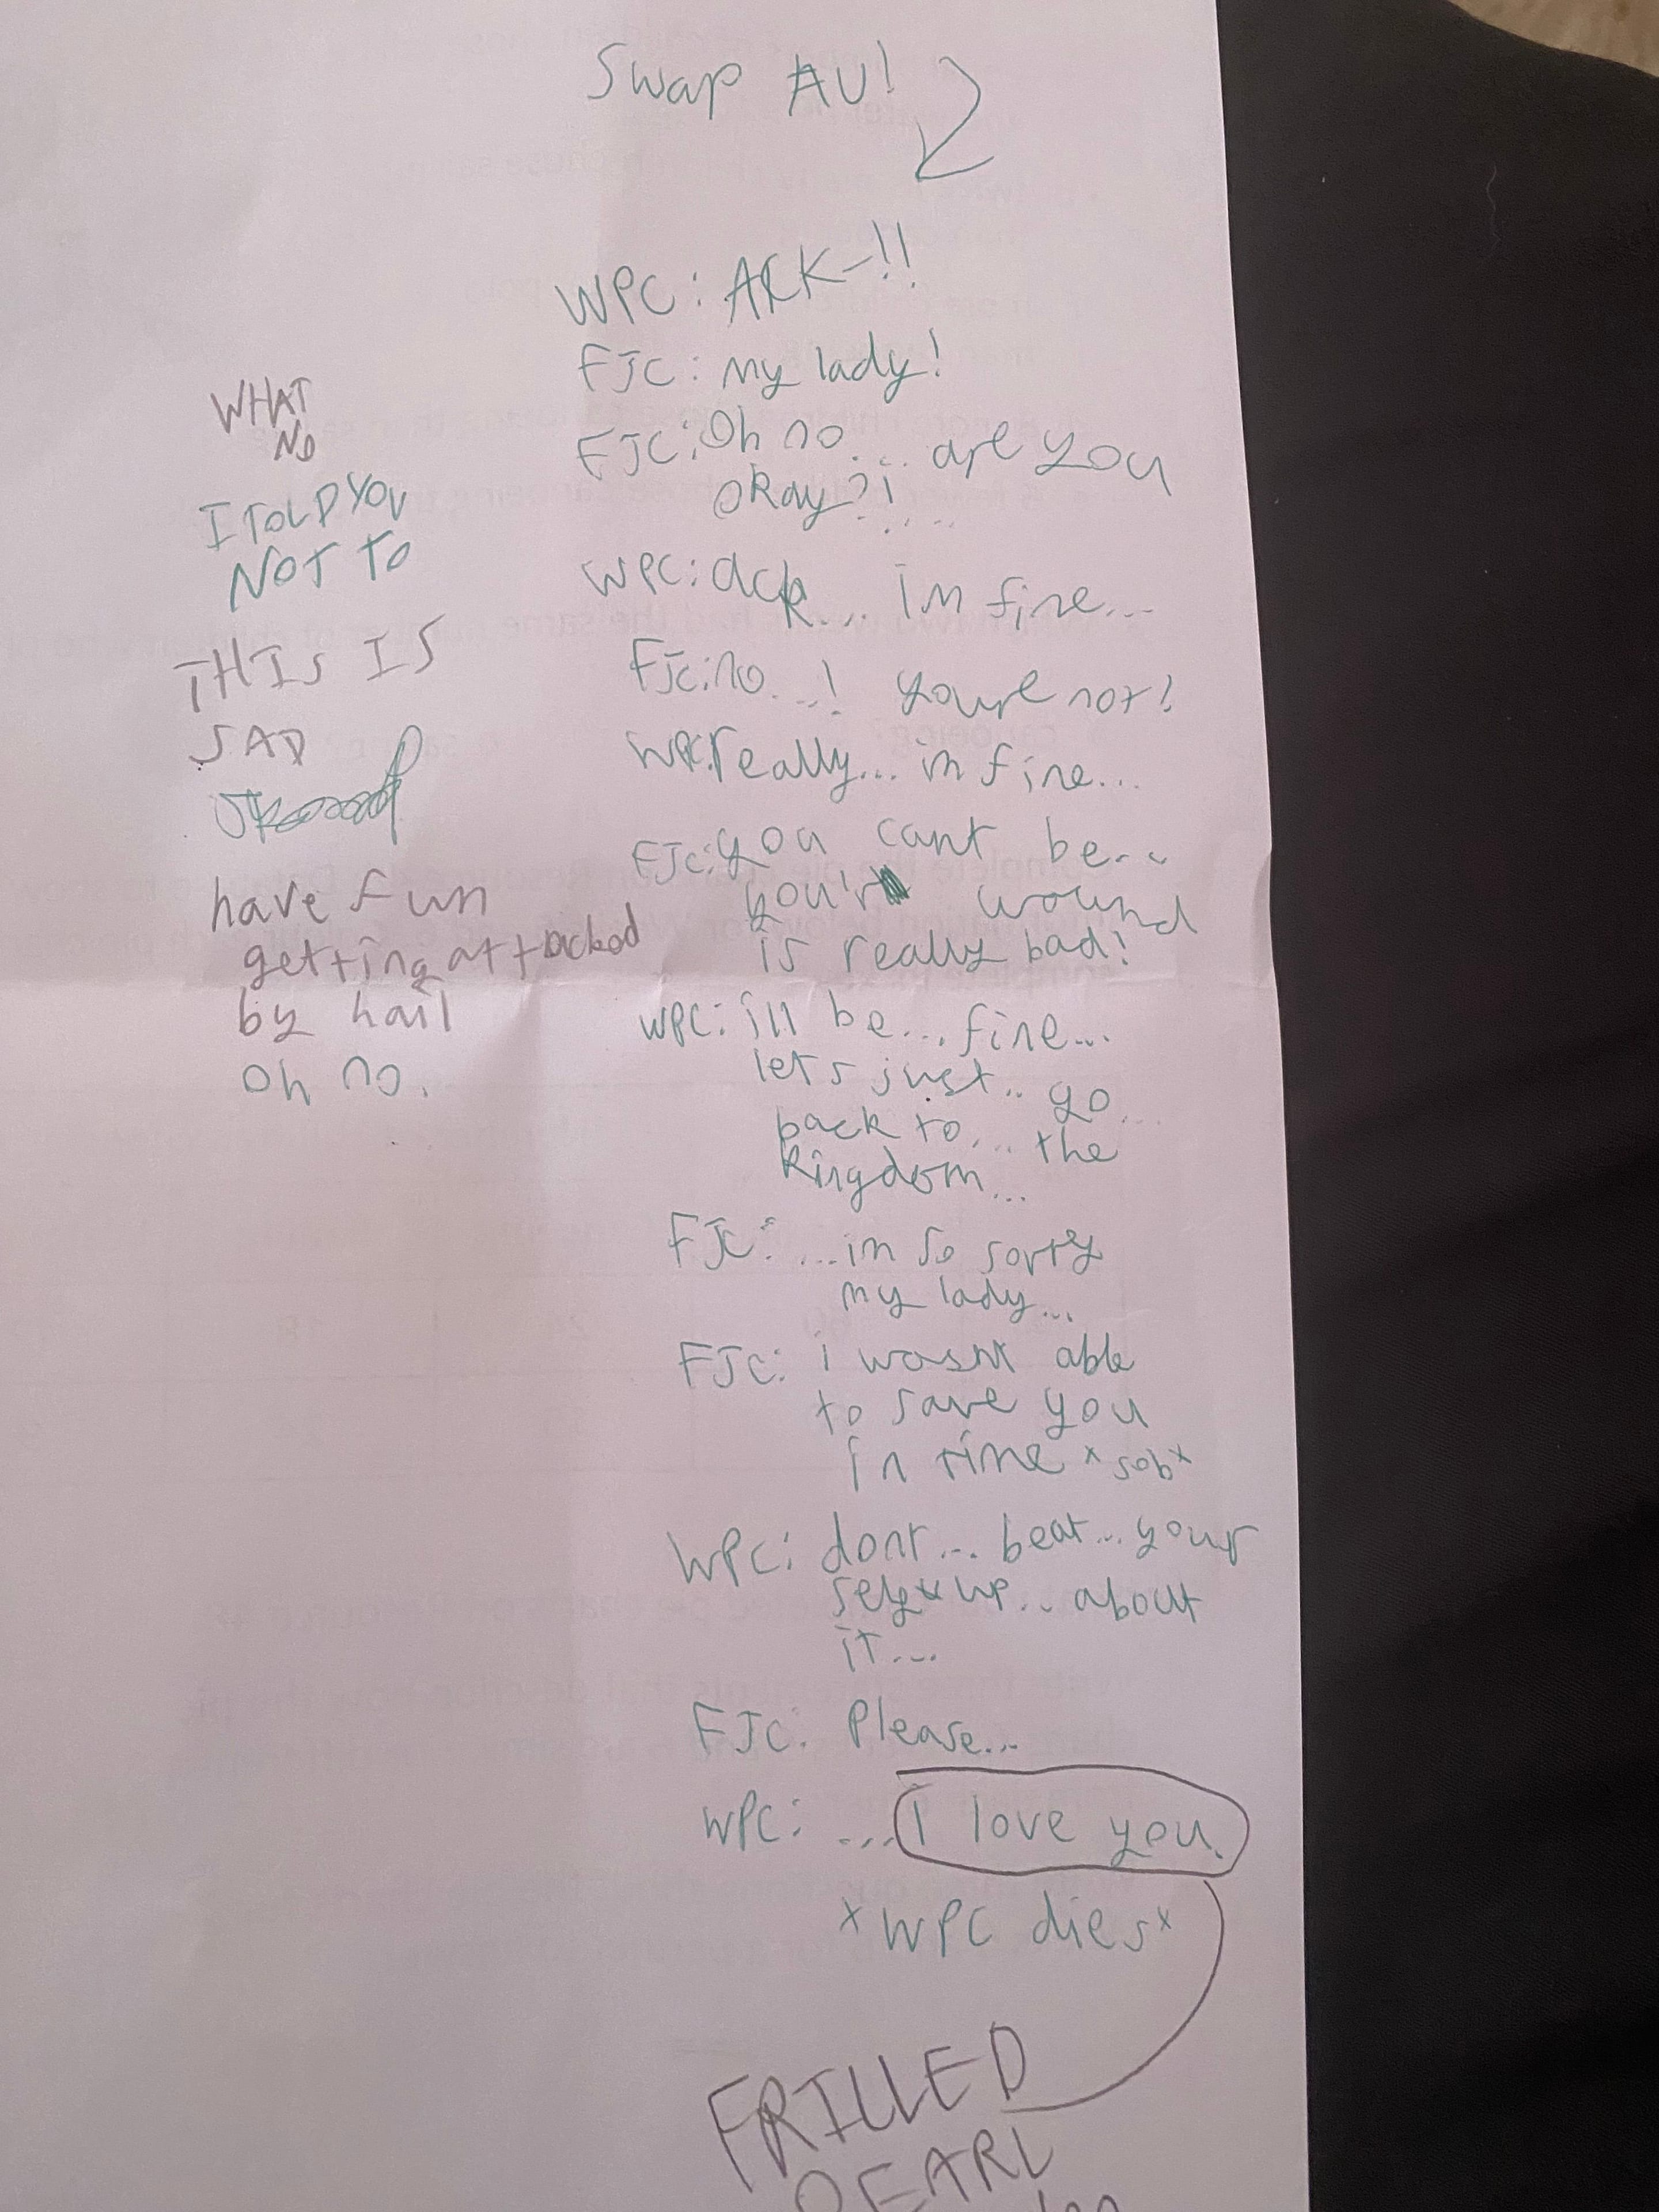 Swap AU!
WPC: ACK-!!
FJC: my lady!
FJC: Oh no... are you
okay?!....
WPC: ack.... im fine...
FJC: no...! youre not!
WPC: really... im fine...
FJC: you cant be...
you'r wound
is really bad!
WPC: ill be... fine...
lets just.. go...
back to.... the
kingdom...
FJC: ...im so sorry
my lady...
FJC: i wasnt able
to save you
in time *sob*
WPC: dont... beat... your
self up... about
it...
FJC: Please...
WPC: ... I love you.
*WPC dies*
FRILLED
PEARL
WHAT
NO
I TOLD YOU
NOT TO
THIS IS
SAD
have fun
getting attacked
by hail
oh no.